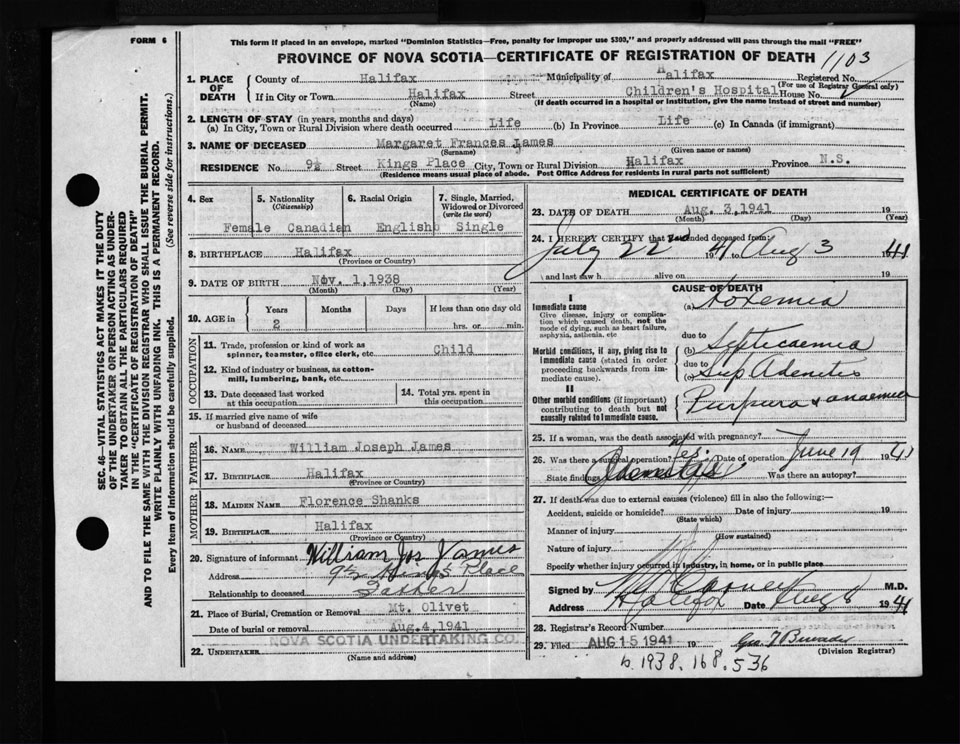 FORM 6
This form if placed in an envelope, marked "Dominion Statistics—Free, penalty for improper use $300," and properly addressed will pass through the mail "FREE"
PROVINCE OF NOVA SCOTIA—CERTIFICATE OF REGISTRATION OF DEATH 1103
1. PLACE OF DEATH County of Halifax Municipality of Halifax Registered No.
(For use of Registrar General only)
If in City or Town Halifax Street Children's Hospital House No.
(Name) (If death occurred in a hospital or institution, give the name instead of street and number)
2. LENGTH OF STAY (in years, months and days)
(a) In City, Town or Rural Division where death occurred Life (b) In Province Life (c) In Canada (if immigrant)
3. NAME OF DECEASED Margaret Frances James
(Surname) (Given name or names)
RESIDENCE No. 9½ Street Kings Place City, Town or Rural Division Halifax Province N.S.
(Residence means usual place of abode. Post Office Address for residents in rural parts not sufficient)
4. Sex 5. Nationality (Citizenship) 6. Racial Origin 7. Single, Married, Widowed or Divorced (write the word)
Female Canadian English Single
8. BIRTHPLACE Halifax
(Province or Country)
9. DATE OF BIRTH Nov. 1, 1938
(Month) (Day) (Year)
10. AGE in Years Months Days If less than one day old
2 hrs. or min.
OCCUPATION
11. Trade, profession or kind of work as spinner, teamster, office clerk, etc. Child
12. Kind of industry or business, as cotton-mill, lumbering, bank, etc.
13. Date deceased last worked at this occupation 14. Total yrs. spent in this occupation
15. If married give name of wife or husband of deceased
FATHER
16. NAME William Joseph James
17. BIRTHPLACE Halifax
(Province or Country)
MOTHER
18. MAIDEN NAME Florence Shanks
19. BIRTHPLACE Halifax
(Province or Country)
20. Signature of informant William Jos James
Address 9½ Kings Place
Relationship to deceased Father
21. Place of Burial, Cremation or Removal Mt. Olivet
Date of burial or removal Aug. 4, 1941
NOVA SCOTIA UNDERTAKING CO.
22. UNDERTAKER
(Name and address)
MEDICAL CERTIFICATE OF DEATH
23. DATE OF DEATH Aug. 3, 1941 19
(Month) (Day) (Year)
24. I HEREBY CERTIFY that I attended deceased from:
July 22 1941 to Aug 3 1941
and last saw h alive on 19
CAUSE OF DEATH
I
Immediate cause (a) Toxemia
Give disease, injury or complication which caused death, not the mode of dying, such as heart failure, asphyxia, asthenia, etc.
due to
Morbid conditions, if any, giving rise to immediate cause (stated in order proceeding backwards from immediate cause). (b) Septicaemia
due to
(c) Sup Adenitis
II
Other morbid conditions (if important) contributing to death but not causally related to immediate cause. Purpura & anaemia
25. If a woman, was the death associated with pregnancy?
26. Was there a surgical operation? Yes Date of operation June 19 1941
State findings Was there an autopsy?
27. If death was due to external causes (violence) fill in also the following:—
Accident, suicide or homicide? Date of injury 19
(State which)
Manner of injury
(How sustained)
Nature of injury
Specify whether injury occurred in industry, in home, or in public place
Signed by M.D.
Address Halifax Date Aug 8 1941
28. Registrar's Record Number
29. Filed AUG 15 1941 19
(Division Registrar)
b. 1938. 168. 536
SEC. 46—VITAL STATISTICS ACT MAKES IT THE DUTY
OF THE UNDERTAKER OR PERSON ACTING AS UNDER-
TAKER TO OBTAIN ALL THE PARTICULARS REQUIRED
IN THE "CERTIFICATE OF REGISTRATION OF DEATH"
AND TO FILE THE SAME WITH THE DIVISION REGISTRAR WHO SHALL ISSUE THE BURIAL PERMIT.
WRITE PLAINLY WITH UNFADING INK. THIS IS A PERMANENT RECORD.
Every item of information should be carefully supplied. (See reverse side for instructions.)